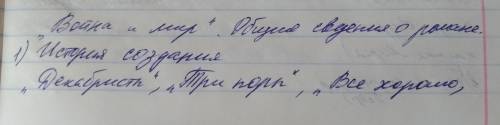 „Война и мир". Общие сведения о романе.
1) История создания
„Декабристы", „Три поры", „Все хорошо,